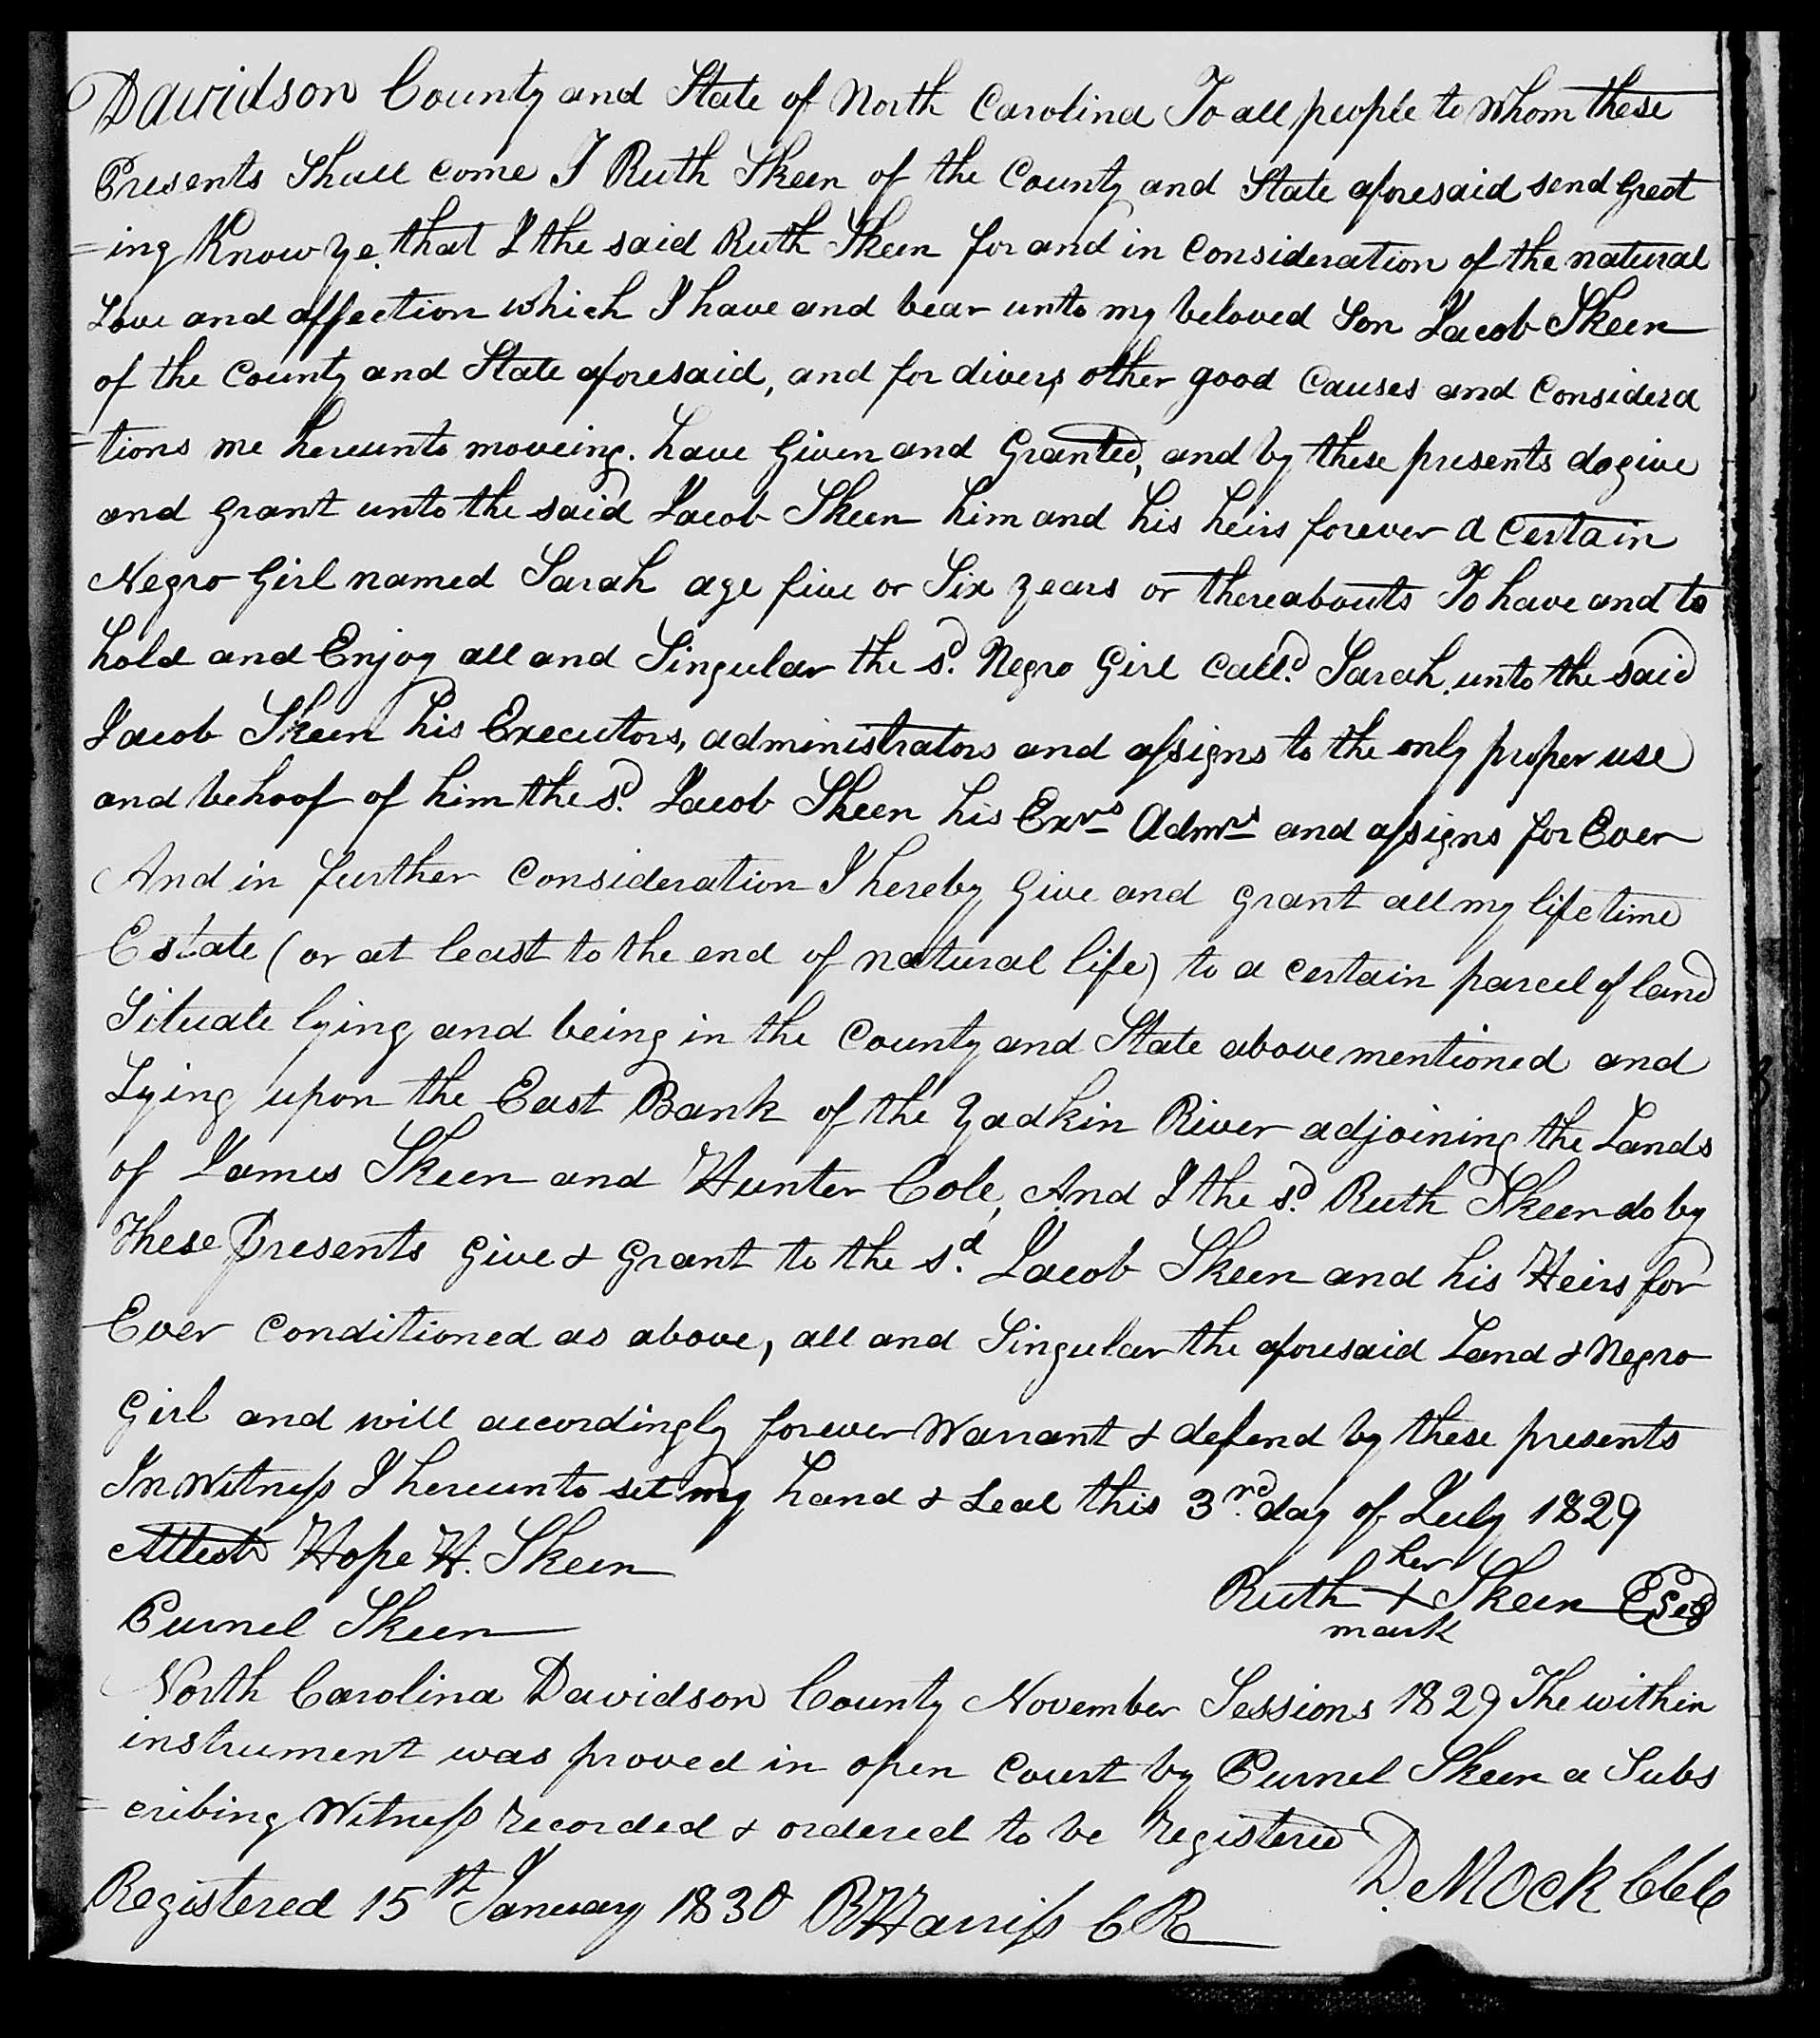 Davidson County and State of North Carolina To all people to Whom these
Presents Shall come I Ruth Skeen of the County and State aforesaid send Greet
=ing Know ye that I the said Ruth Skeen for and in Consideration of the natural
Love and affection which I have and bear unto my beloved Son Jacob Skeen
of the County and State aforesaid, and for divers other good Causes and Considera
=tions me hereunto moveing. have Given and Granted, and by these presents do give
and grant unto the said Jacob Skeen him and his heirs forever a Certain
Negro Girl named Sarah age five or Six years or thereabouts To have and to
hold and Enjoy all and Singular the sd. Negro Girl calld. Sarah unto the said
Jacob Skeen his Executors, administrators and assigns to the only proper use
and behoof of him the sd. Jacob Skeen his Exrs Admrs and assigns for Ever
And in further Consideration I hereby Give and grant all my life time
Estate (or at least to the end of natural life) to a certain parcel of land
Situate lying and being in the County and State above mentioned and
Lying upon the East Bank of the Yadkin River adjoining the Lands
of James Skeen and Hunter Cole, And I the sd. Ruth Skeen do by
These Presents Give & Grant to the sd. Jacob Skeen and his Heirs for
Ever Conditioned as above, all and Singular the aforesaid Land & Negro
Girl and will accordingly forever Warrant & defend by these presents
In Witness I hereunto set my hand & Seal this 3rd. day of July 1829
Attest Hope H. Skeen
her
Ruth + Skeen
mark
Purnel Skeen
North Carolina Davidson County November Sessions 1829 The within
instrument was proved in open Court by Purnel Skeen a Subs
=cribing Witness recorded & ordered to be registered
D. Mock CCC
Registered 15th January 1830 B Harriss C R